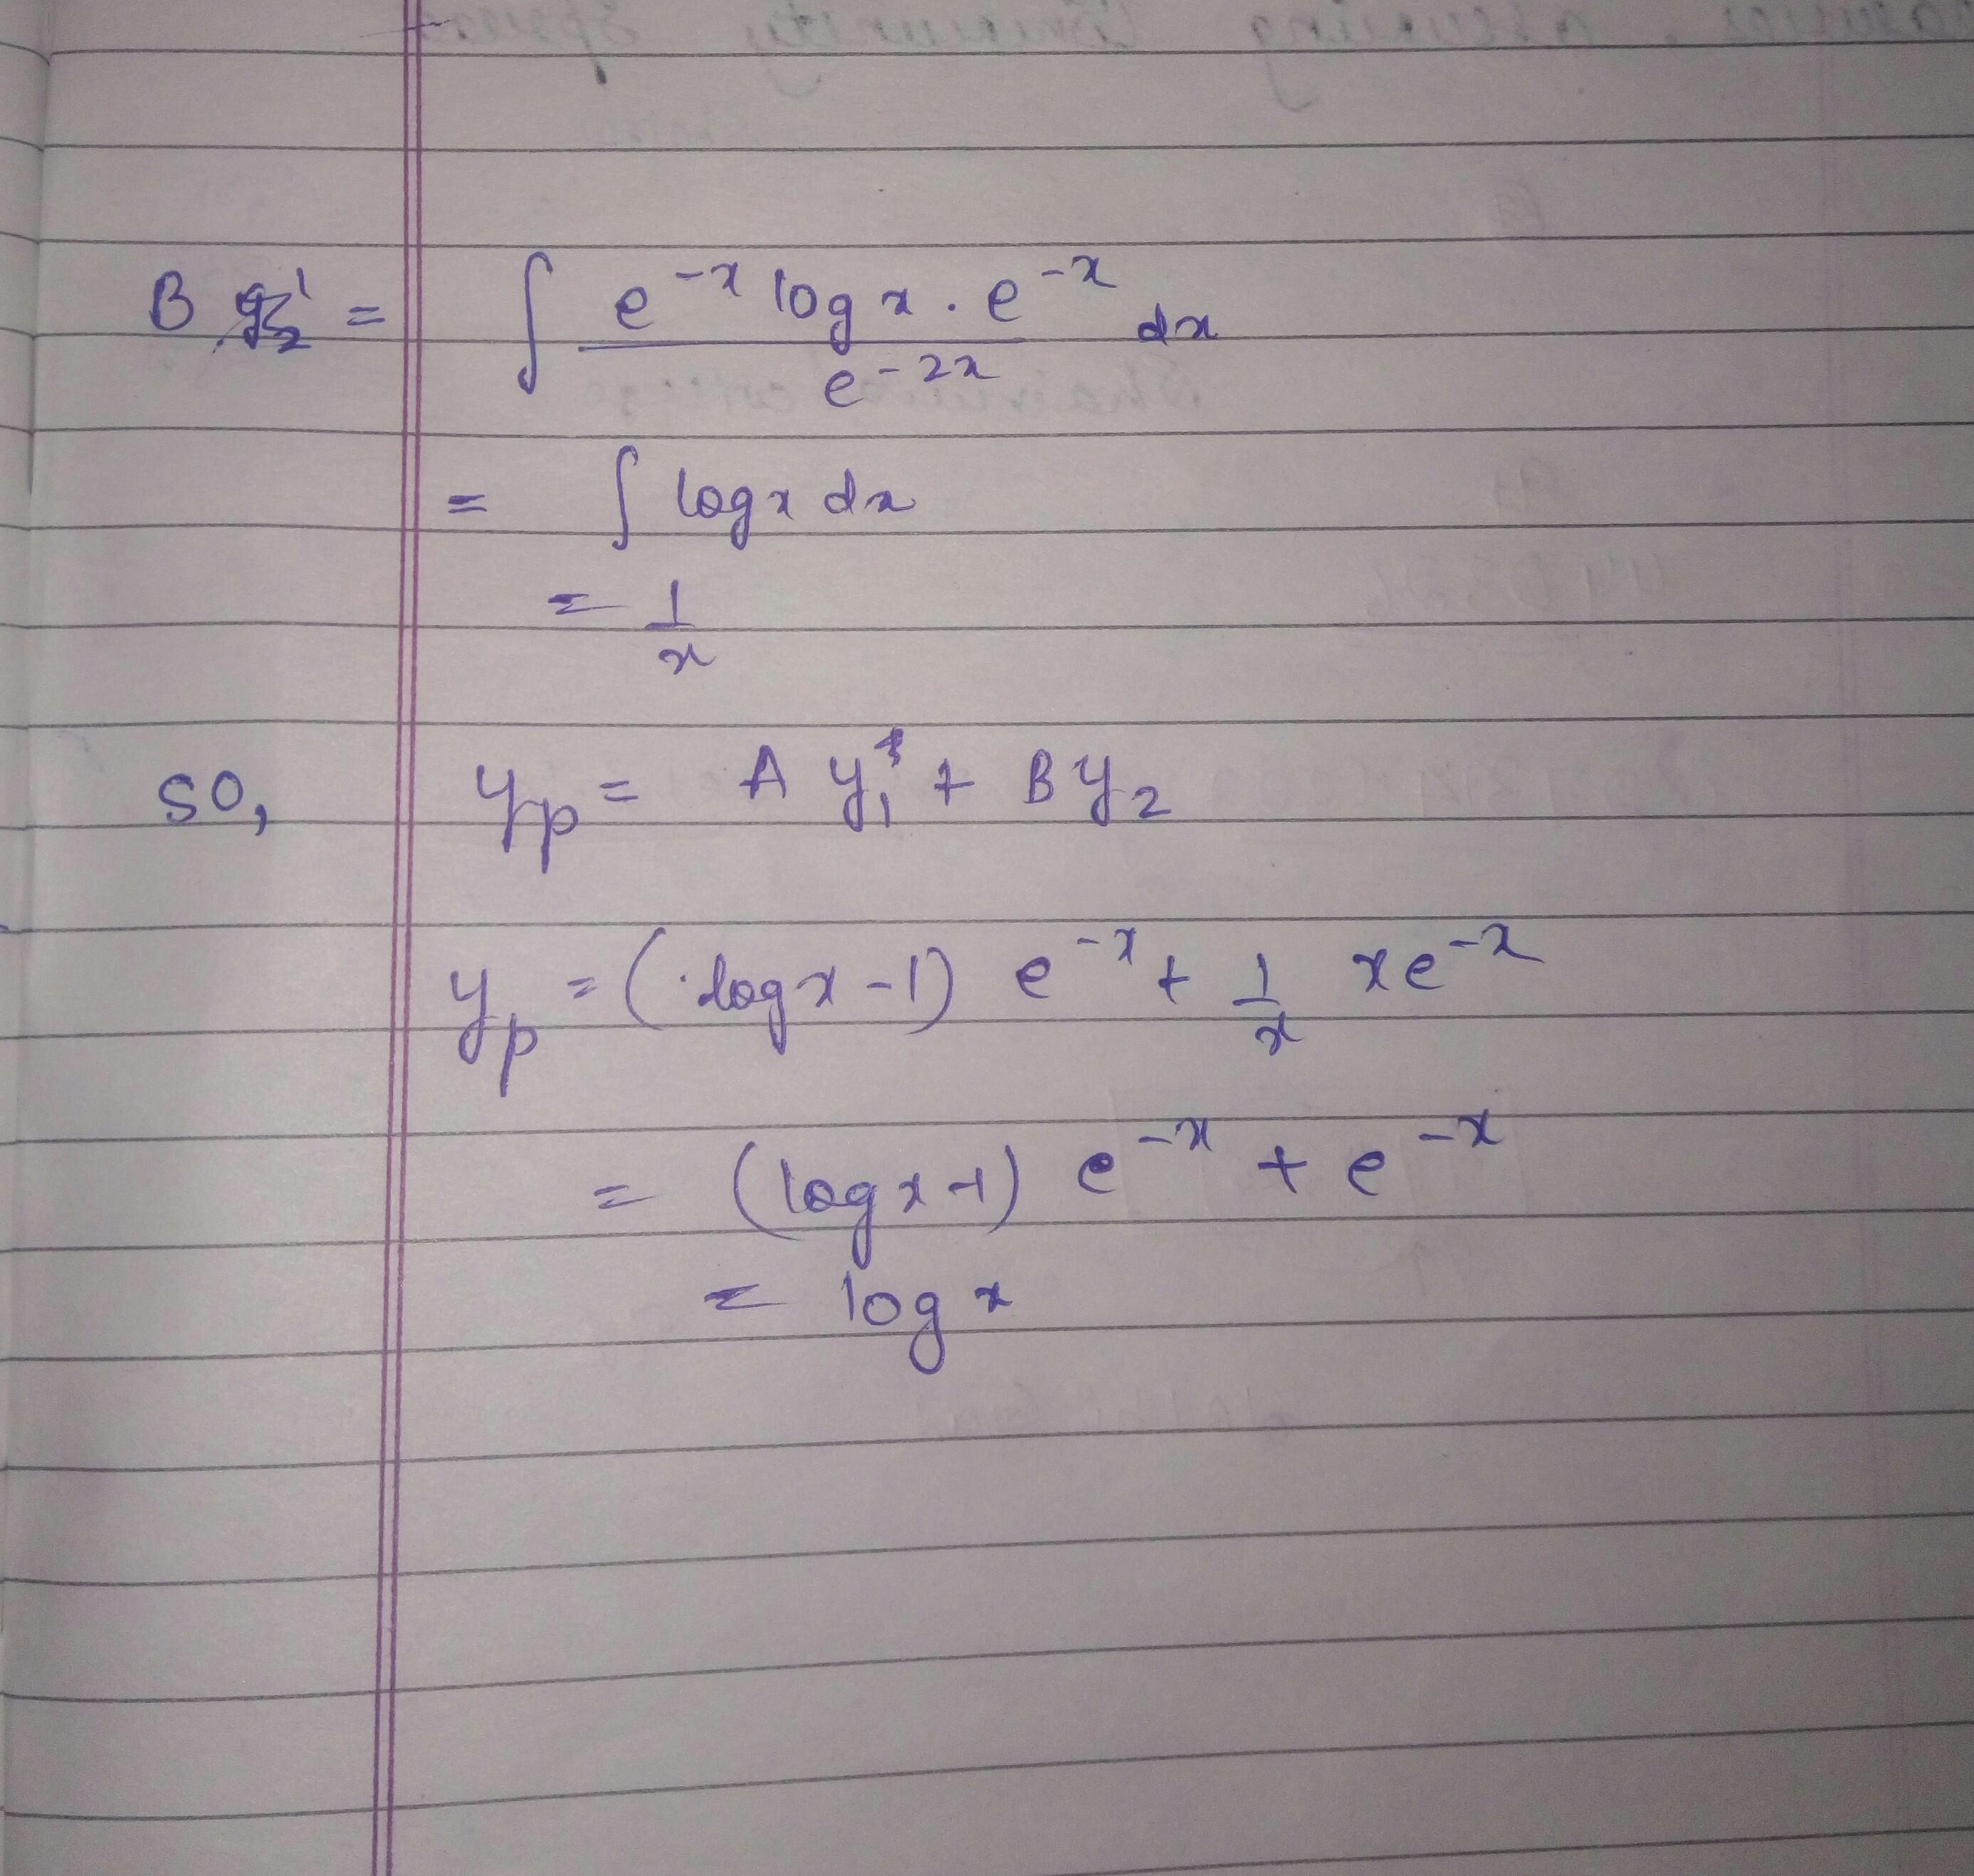 B = ∫ e^{-x} log x . e^{-x} / e^{-2x} dx
= ∫ log x dx
= 1/x
SO, y_p = A y_1 + B y_2
y_p = (log x - 1) e^{-x} + 1/x xe^{-x}
= (log x - 1) e^{-x} + e^{-x}
= log x